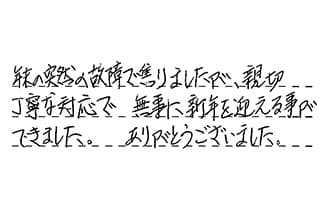 年末の突然の故障で焦りましたが、親切
丁寧な対応で　無事に新年を迎える事が
できました。　ありがとうございました。